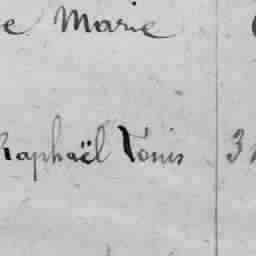 e Marie
Raphaël Louis 3